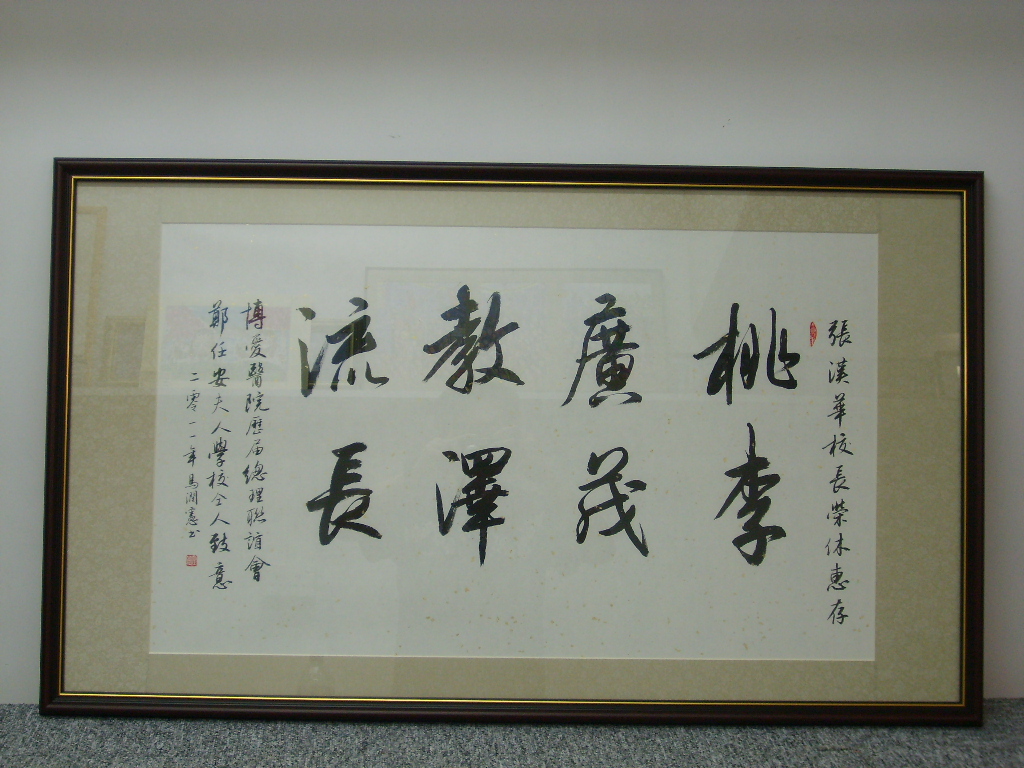 張漢華校長榮休惠存
桃李
廣茂
教澤
流長
博愛醫院歷屆總理聯誼會
鄭任安夫人學校仝人致意
二零一一年馬潤憲书